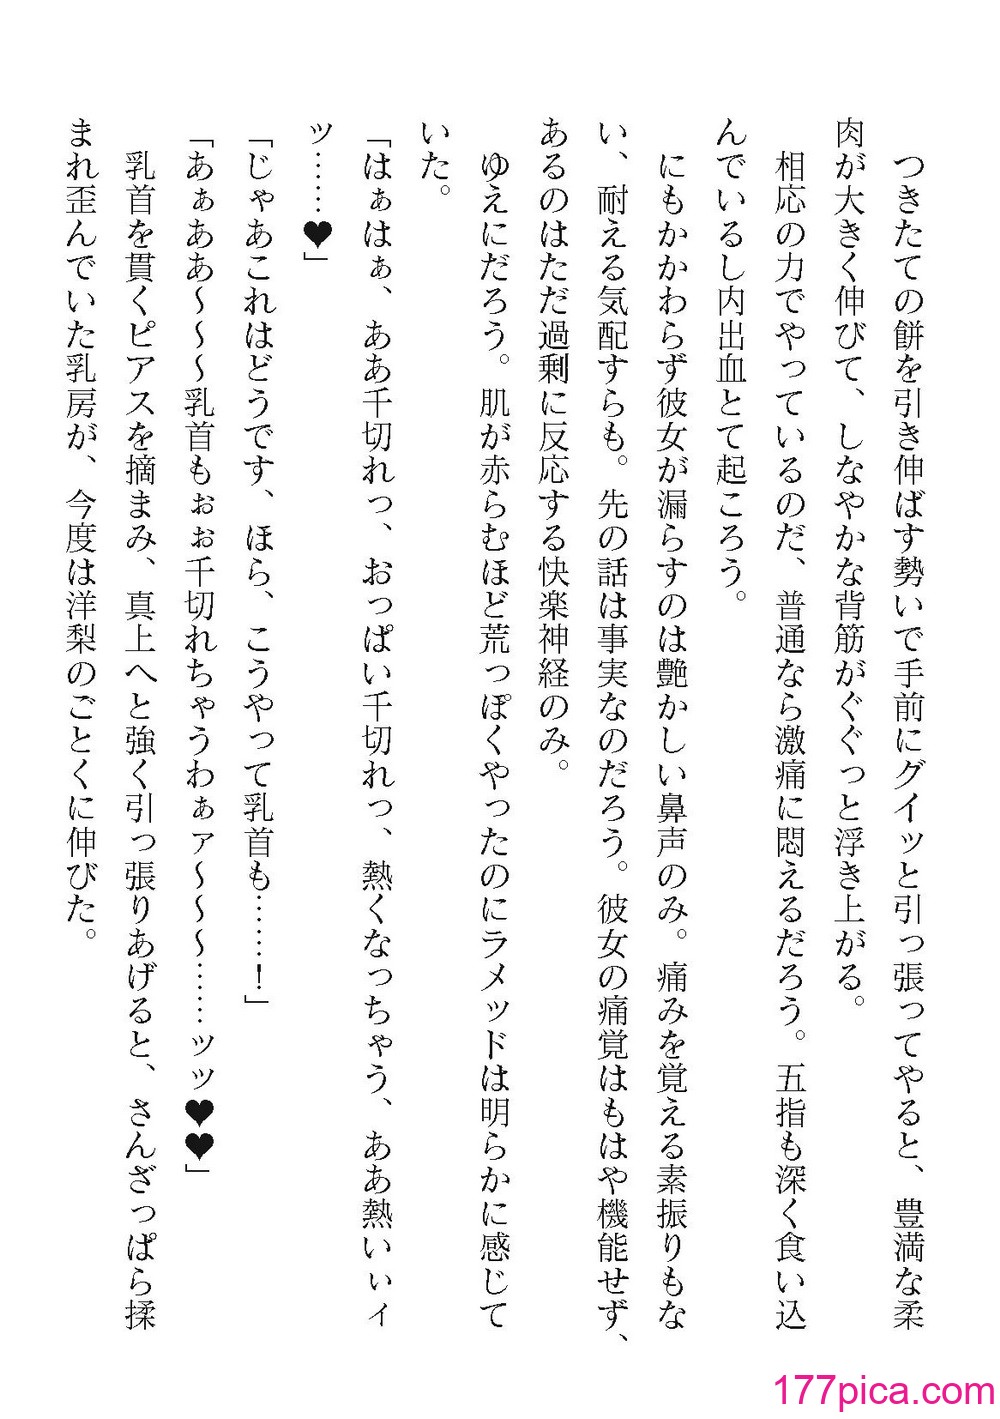 つきたての餅を引き伸ばす勢いで手前にグイッと引っ張ってやると、豊満な柔
肉が大きく伸びて、しなやかな背筋がぐぐっと浮き上がる。
相応の力でやっているのだ、普通なら激痛に悶えるだろう。五指も深く食い込
んでいるし内出血とて起ころう。
にもかかわらず彼女が漏らすのは艶かしい鼻声のみ。痛みを覚える素振りもな
い、耐える気配すらも。先の話は事実なのだろう。彼女の痛覚はもはや機能せず、
あるのはただ過剰に反応する快楽神経のみ。
ゆえにだろう。肌が赤らむほど荒っぽくやったのにラメッドは明らかに感じて
いた。
「はぁはぁ、ああ千切れっ、おっぱい千切れっ、熱くなっちゃう、ああ熱いぃィ
ッ……♥」
「じゃあこれはどうです、ほら、こうやって乳首も……！」
「あぁああ～～～乳首もぉぉ千切れちゃうわぁァ～～～……ッッ♥♥」
乳首を貫くピアスを摘まみ、真上へと強く引っ張りあげると、さんざっぱら揉
まれ歪んでいた乳房が、今度は洋梨のごとくに伸びた。
177pica.com